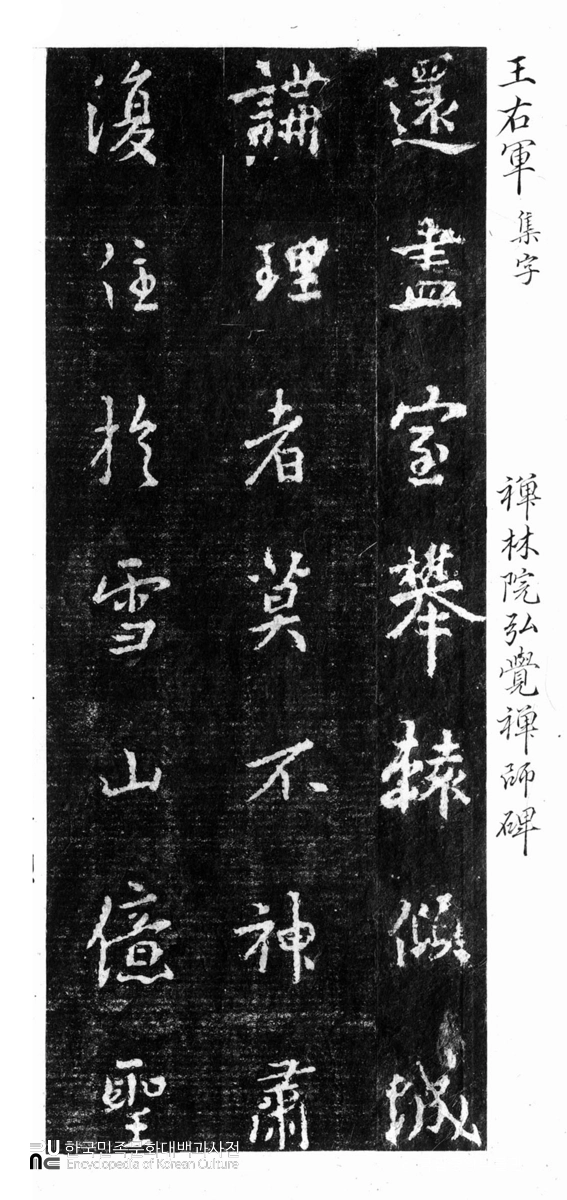 王右軍 集字 禅林院弘覺禅師碑
還盡室攀轅城
講理者莫不神肅
復住於雪山億聖
한국민족문화대백과사전
Encyclopedia of Korean Culture